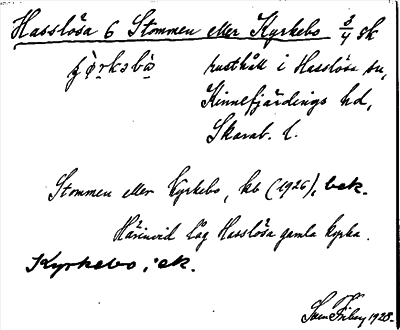 Hasslösa 6 Stommen eller Kyrkebo 3/4 sk
rusthåll i Hasslösa sn,
Kinnefjärdings hd,
Skarab. l.
Stommen eller Kyrkebo, kb (1926), bek.
Härinvid låg Hasslösa gamla kyrka.
Kyrkebo, ek.
1928.